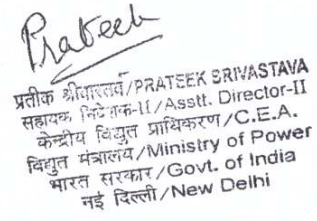 Prateek
प्रतीक श्रीवास्तव/PRATEEK SRIVASTAVA
सहायक निदेशक-II/Asstt. Director-II
केन्द्रीय विद्युत प्राधिकरण/C.E.A.
विद्युत मंत्रालय/Ministry of Power
भारत सरकार/Govt. of India
नई दिल्ली/New Delhi